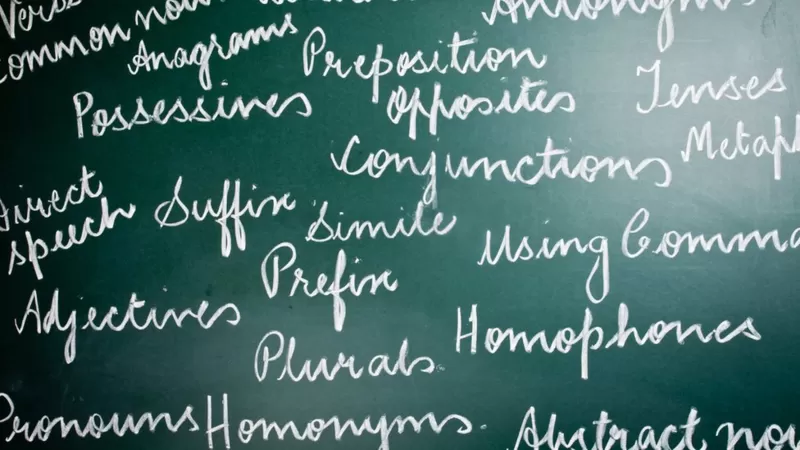 Verbs
Common nou
Antonyms
Anagrams
Preposition
Opposites
Tenses
Possessives
Conjunctions
Metaph
Direct
speech
Suffix
Simile
Using Comma
Prefix
Adjectives
Homophones
Plurals
Pronouns
Homonyms
Abstract nou